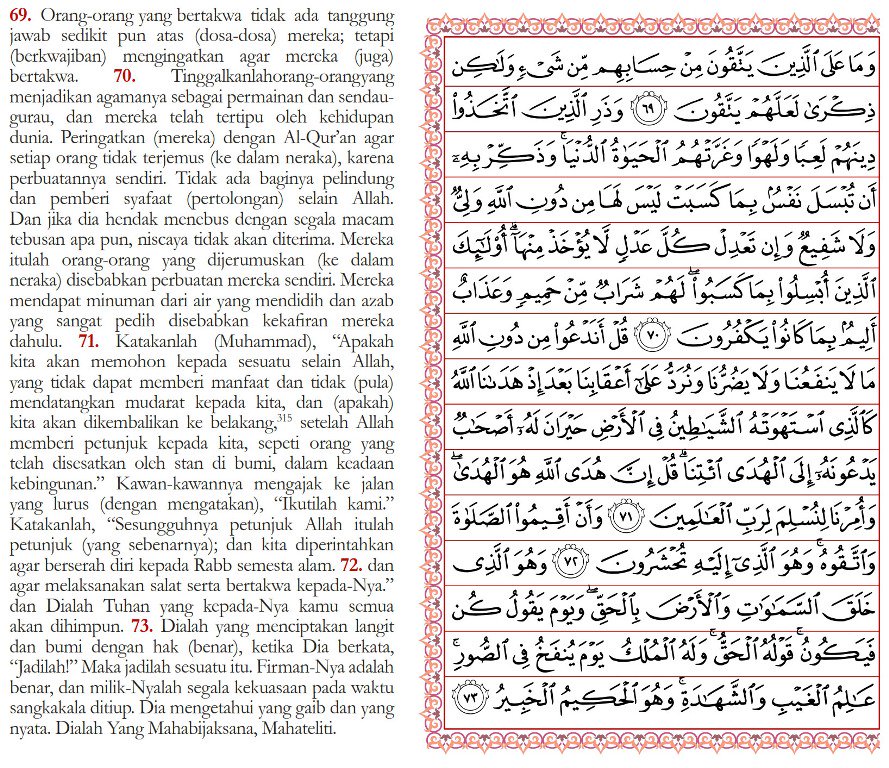 69. Orang-orang yang bertakwa tidak ada tanggung
jawab sedikit pun atas (dosa-dosa) mereka; tetapi
(berkwajiban) mengingatkan agar mereka (juga)
bertakwa. 70. Tinggalkanlahorang-orangyang
menjadikan agamanya sebagai permainan dan sendau-
gurau, dan mereka telah tertipu oleh kehidupan
dunia. Peringatkan (mereka) dengan Al-Qur’an agar
setiap orang tidak terjemus (ke dalam neraka), karena
perbuatannya sendiri. Tidak ada baginya pelindung
dan pemberi syafaat (pertolongan) selain Allah.
Dan jika dia hendak menebus dengan segala macam
tebusan apa pun, niscaya tidak akan diterima. Mereka
itulah orang-orang yang dijerumuskan (ke dalam
neraka) disebabkan perbuatan mereka sendiri. Mereka
mendapat minuman dari air yang mendidih dan azab
yang sangat pedih disebabkan kekafiran mereka
dahulu. 71. Katakanlah (Muhammad), “Apakah
kita akan memohon kepada sesuatu selain Allah,
yang tidak dapat memberi manfaat dan tidak (pula)
mendatangkan mudarat kepada kita, dan (apakah)
kita akan dikembalikan ke belakang,315 setelah Allah
memberi petunjuk kepada kita, sepeti orang yang
telah disesatkan oleh stan di bumi, dalam keadaan
kebingunan.” Kawan-kawannya mengajak ke jalan
yang lurus (dengan mengatakan), “Ikutilah kami.”
Katakanlah, “Sesungguhnya petunjuk Allah itulah
petunjuk (yang sebenarnya); dan kita diperintahkan
agar berserah diri kepada Rabb semesta alam. 72. dan
agar melaksanakan salat serta bertakwa kepada-Nya.”
dan Dialah Tuhan yang kepada-Nya kamu semua
akan dihimpun. 73. Dialah yang menciptakan langit
dan bumi dengan hak (benar), ketika Dia berkata,
“Jadilah!” Maka jadilah sesuatu itu. Firman-Nya adalah
benar, dan milik-Nyalah segala kekuasaan pada waktu
sangkakala ditiup. Dia mengetahui yang gaib dan yang
nyata. Dialah Yang Mahabijaksana, Mahateliti.
وَمَا عَلَى ٱلَّذِينَ يَتَّقُونَ مِنْ حِسَابِهِم مِّن شَىْءٍ وَلَٰكِن
ذِكْرَىٰ لَعَلَّهُمْ يَتَّقُونَ ٦٩ وَذَرِ ٱلَّذِينَ ٱتَّخَذُوا۟
دِينَهُمْ لَعِبًا وَلَهْوًا وَغَرَّتْهُمُ ٱلْحَيَوٰةُ ٱلدُّنْيَا ۚ وَذَكِّرْ بِهِۦٓ
أَن تُبْسَلَ نَفْسٌۢ بِمَا كَسَبَتْ لَيْسَ لَهَا مِن دُونِ ٱللَّهِ وَلِىٌّ
وَلَا شَفِيعٌ وَإِن تَعْدِلْ كُلَّ عَدْلٍ لَّا يُؤْخَذْ مِنْهَآ ۗ أُو۟لَٰٓئِكَ
ٱلَّذِينَ أُبْسِلُوا۟ بِمَا كَسَبُوا۟ ۖ لَهُمْ شَرَابٌ مِّنْ حَمِيمٍ وَعَذَابٌ
أَلِيمٌۢ بِمَا كَانُوا۟ يَكْفُرُونَ ٧٠ قُلْ أَنَدْعُوا۟ مِن دُونِ ٱللَّهِ
مَا لَا يَنفَعُنَا وَلَا يَضُرُّنَا وَنُرَدُّ عَلَىٰٓ أَعْقَابِنَا بَعْدَ إِذْ هَدَىٰنَا ٱللَّهُ
كَٱلَّذِى ٱسْتَهْوَتْهُ ٱلشَّيَٰطِينُ فِى ٱلْأَرْضِ حَيْرَانَ لَهُۥٓ أَصْحَٰبٌ
يَدْعُونَهُۥٓ إِلَى ٱلْهُدَى ٱئْتِنَا ۗ قُلْ إِنَّ هُدَى ٱللَّهِ هُوَ ٱلْهُدَىٰ ۖ
وَأُمِرْنَا لِنُسْلِمَ لِرَبِّ ٱلْعَٰلَمِينَ ٧١ وَأَنْ أَقِيمُوا۟ ٱلصَّلَوٰةَ
وَٱتَّقُوهُ ۚ وَهُوَ ٱلَّذِىٓ إِلَيْهِ تُحْشَرُونَ ٧٢ وَهُوَ ٱلَّذِى
خَلَقَ ٱلسَّمَٰوَٰتِ وَٱلْأَرْضَ بِٱلْحَقِّ ۖ وَيَوْمَ يَقُولُ كُن
فَيَكُونُ ۚ قَوْلُهُ ٱلْحَقُّ ۚ وَلَهُ ٱلْمُلْكُ يَوْمَ يُنفَخُ فِى ٱلصُّورِ ۚ
عَٰلِمُ ٱلْغَيْبِ وَٱلشَّهَٰدَةِ ۚ وَهُوَ ٱلْحَكِيمُ ٱلْخَبِيرُ ٧٣